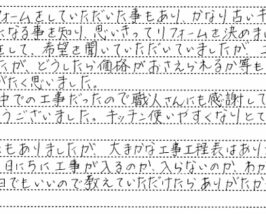 ォームをしていただいた事もあり、かなり古いキ
になる事を知り、思いきってリフォームを決めま
をして、希望を聞いていただいていましたが、二
たが、どうしたら価格がおさえられるか等も
がたく思いました。
中での工事だったので職人さんにも感謝して
うございました。キッチン使いやすくなりとて
もありましたが、大まかな工事工程表はあり
日にちに工事が入るのか、入らないのか、わか
日でもいいので教えていただけたらありがたか